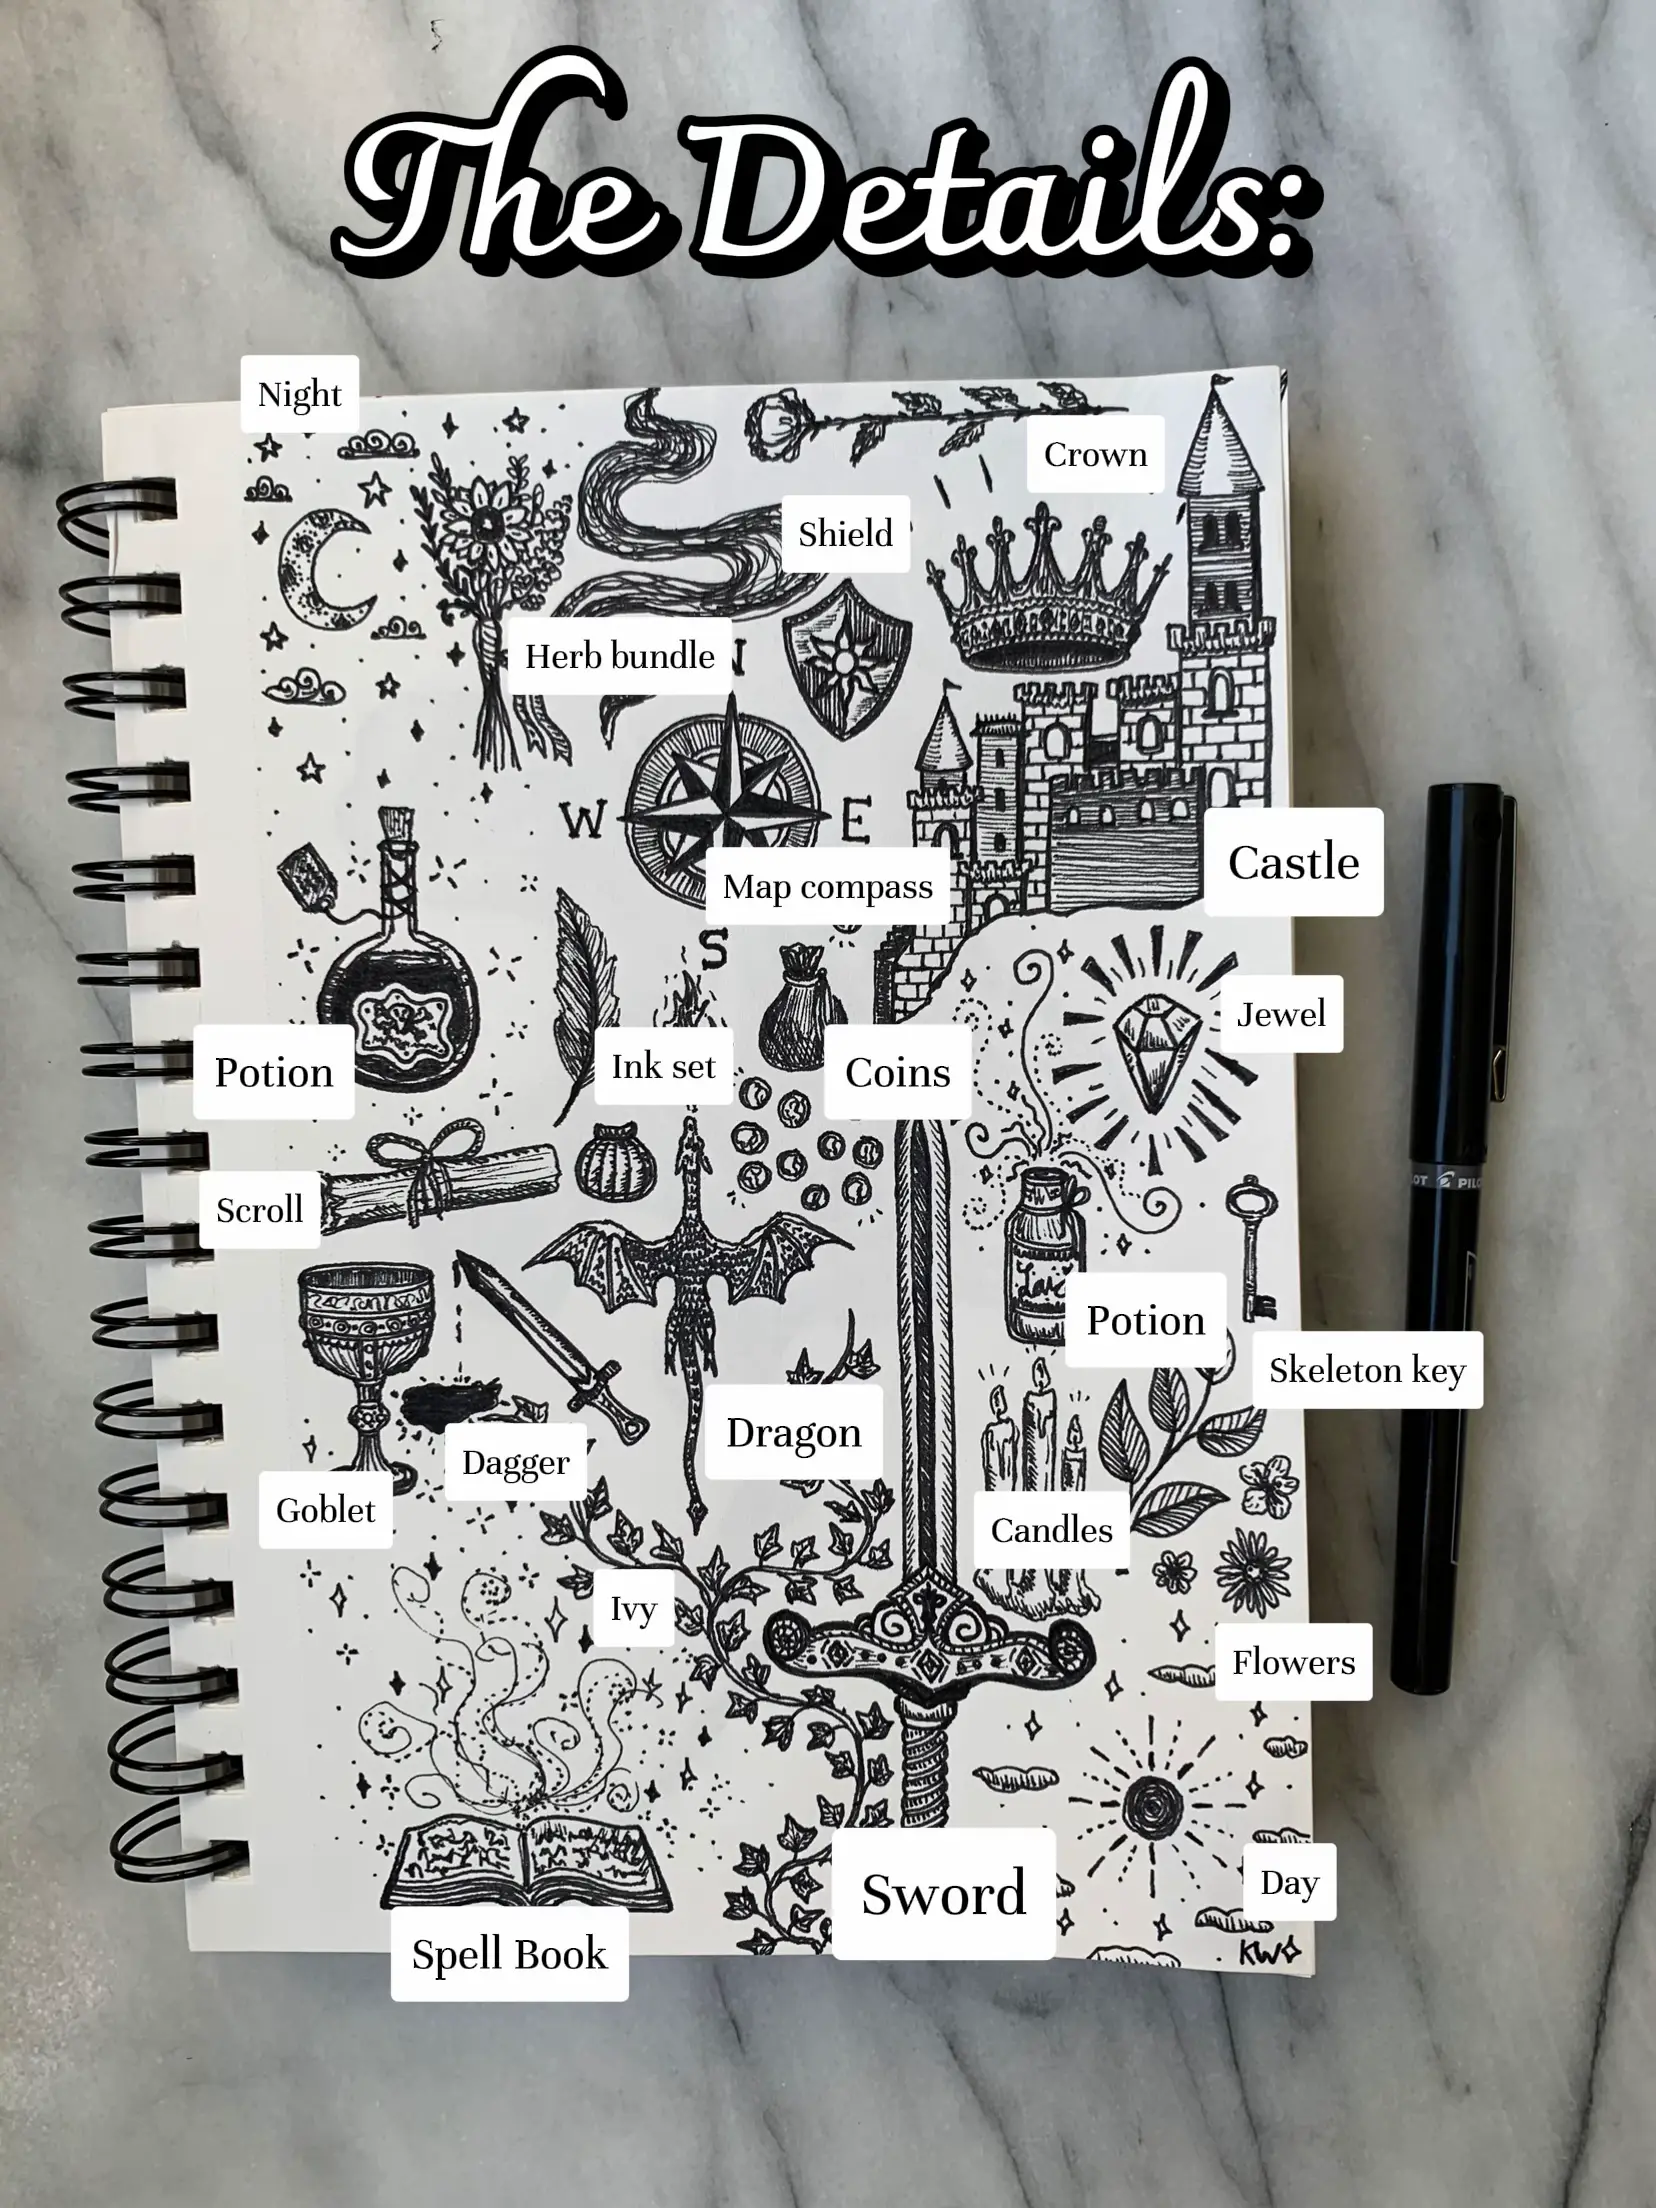 The Details:
Night
Crown
Shield
Herb bundle
N
W
E
Map compass
Castle
S
Jewel
Ink set
Potion
Coins
PILO
Scroll
Love
Potion
Skeleton key
Dragon
Dagger
Goblet
Candles
Ivy
Flowers
Day
Sword
KW
Spell Book